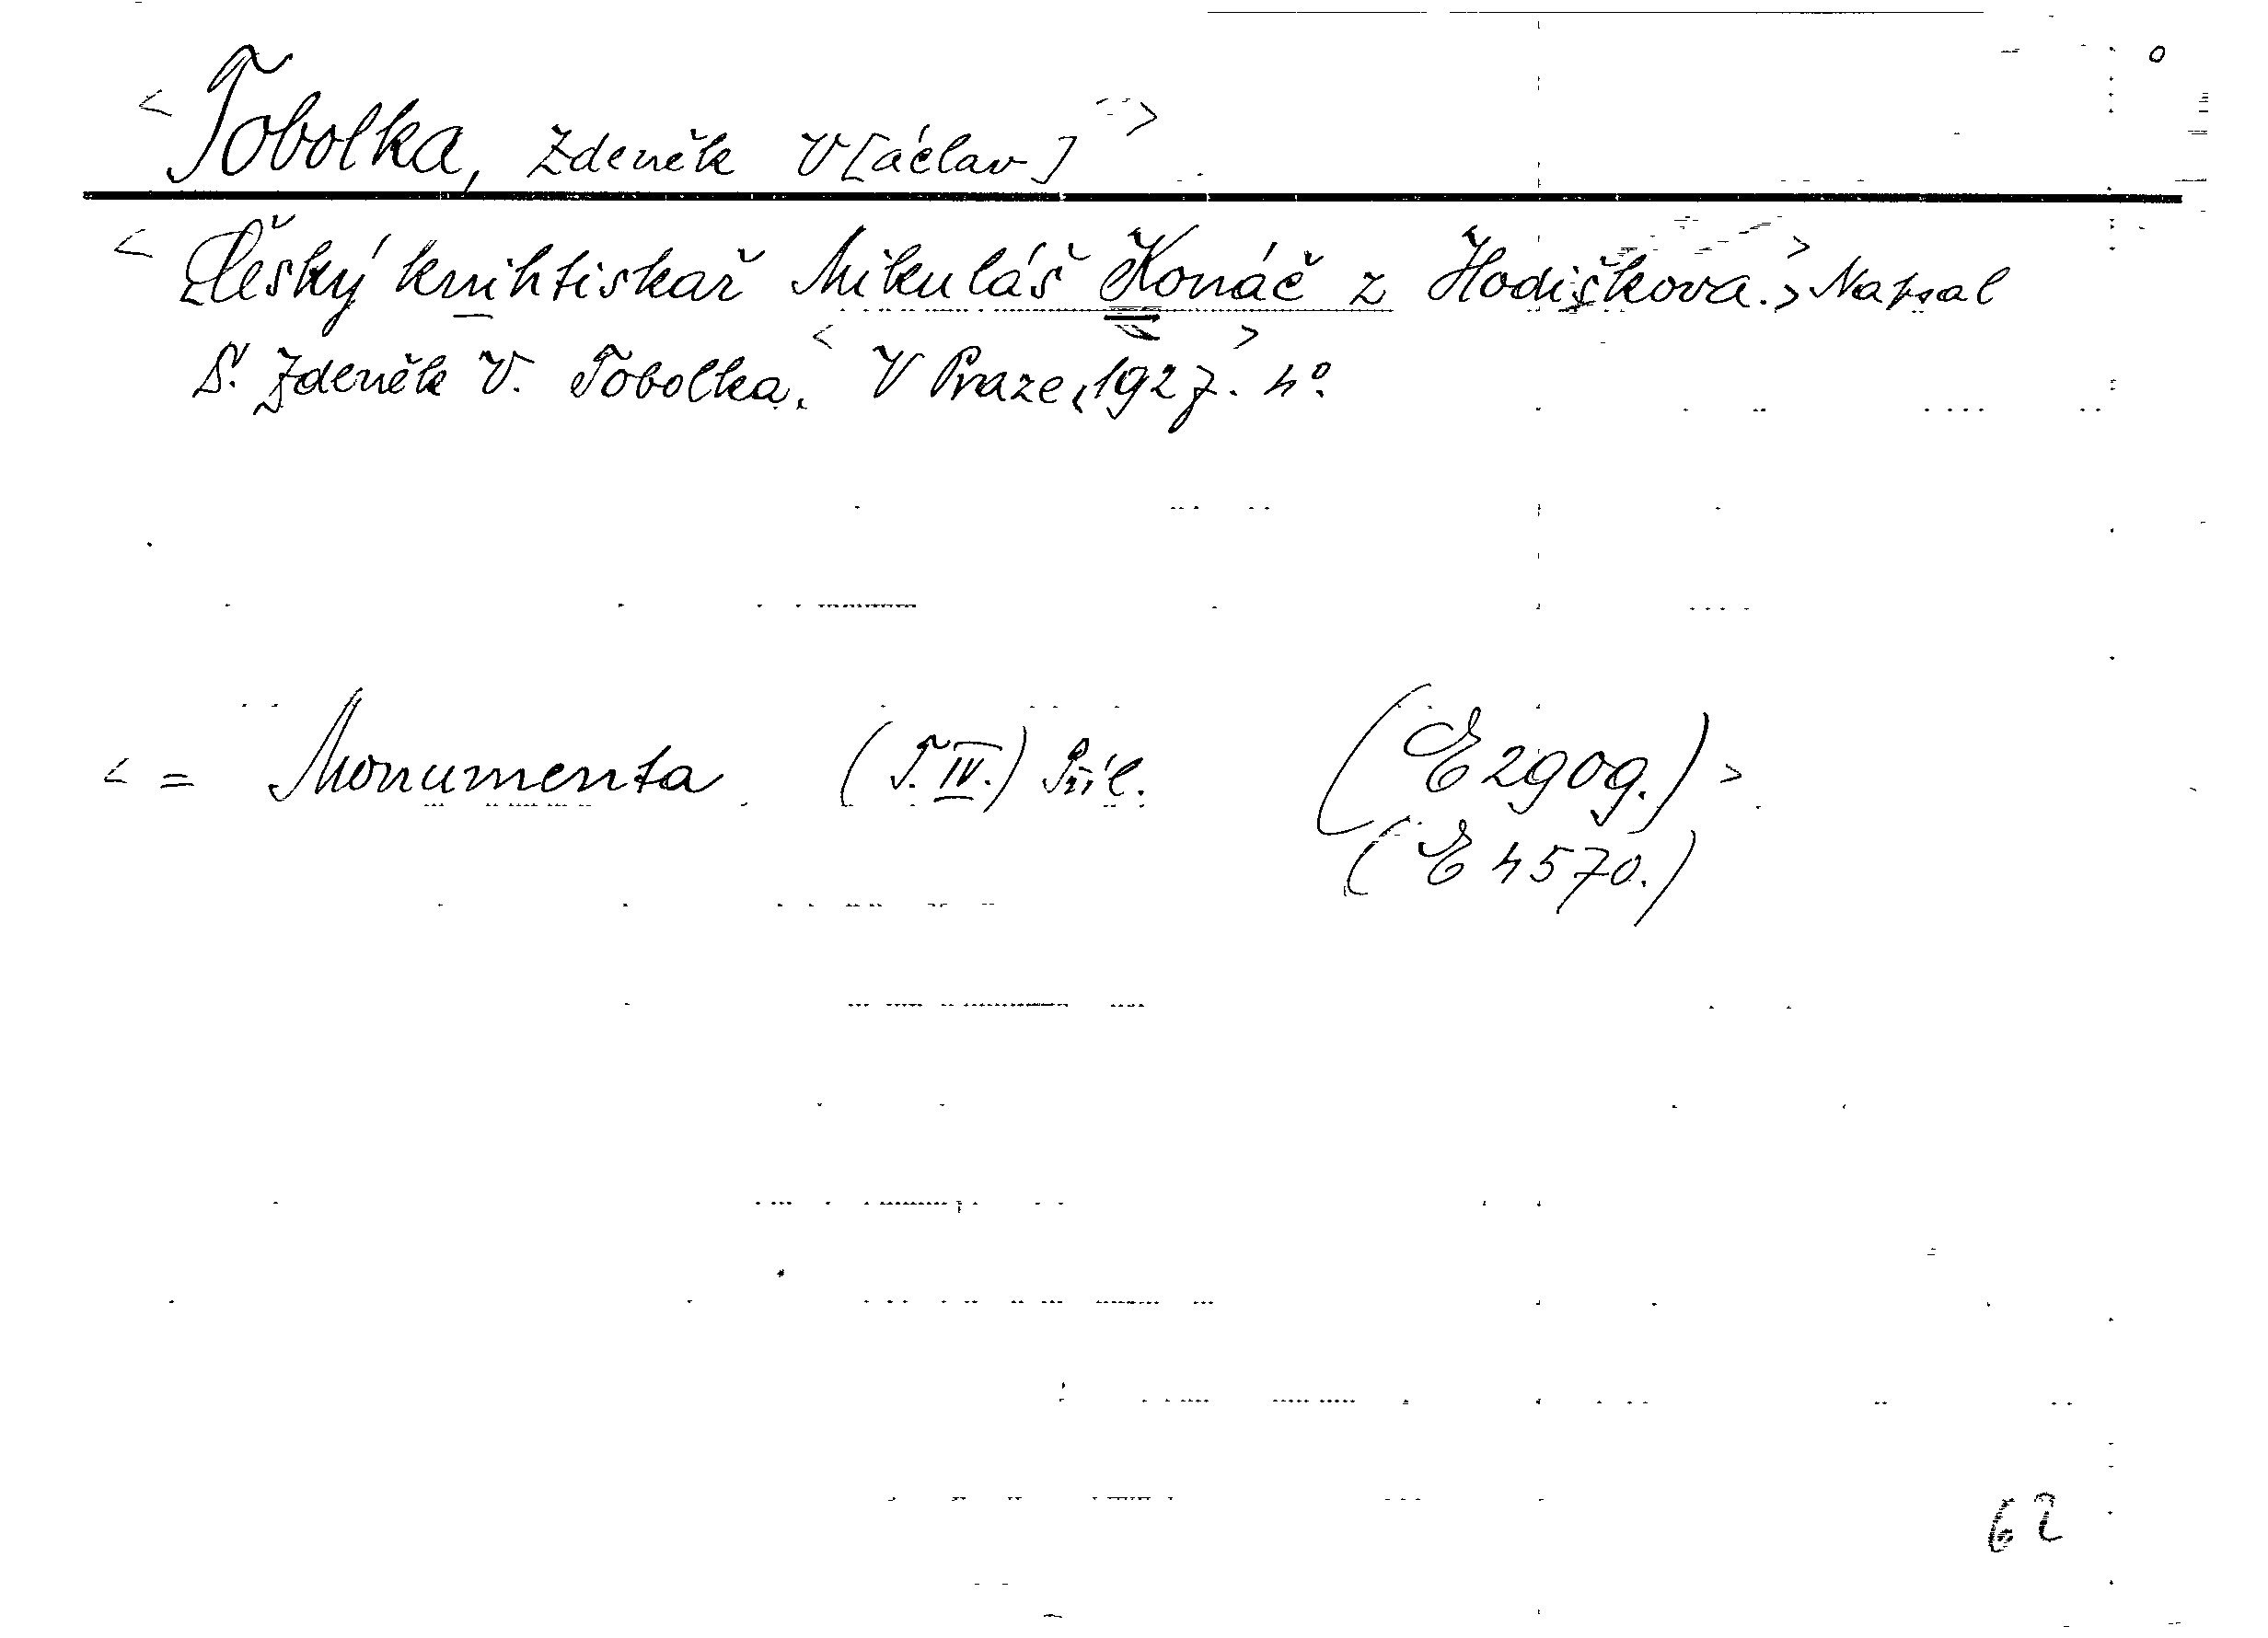 <Tobolka, Zdeněk V[áclav]>
<Český knihtiskař Mikuláš Konáč z Hodiškova.> Napsal
D. Zdeněk V. Tobolka. <V Praze, 1927>. 4°.
<= Monumenta (T. IV.) Příl. (E 2909.)>
(E 4570.)
62